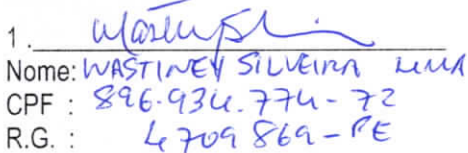 1.
Nome: WASTINEY SILVEIRA LIMA
CPF : 896.934.774-72
R.G. : 4709869-PE